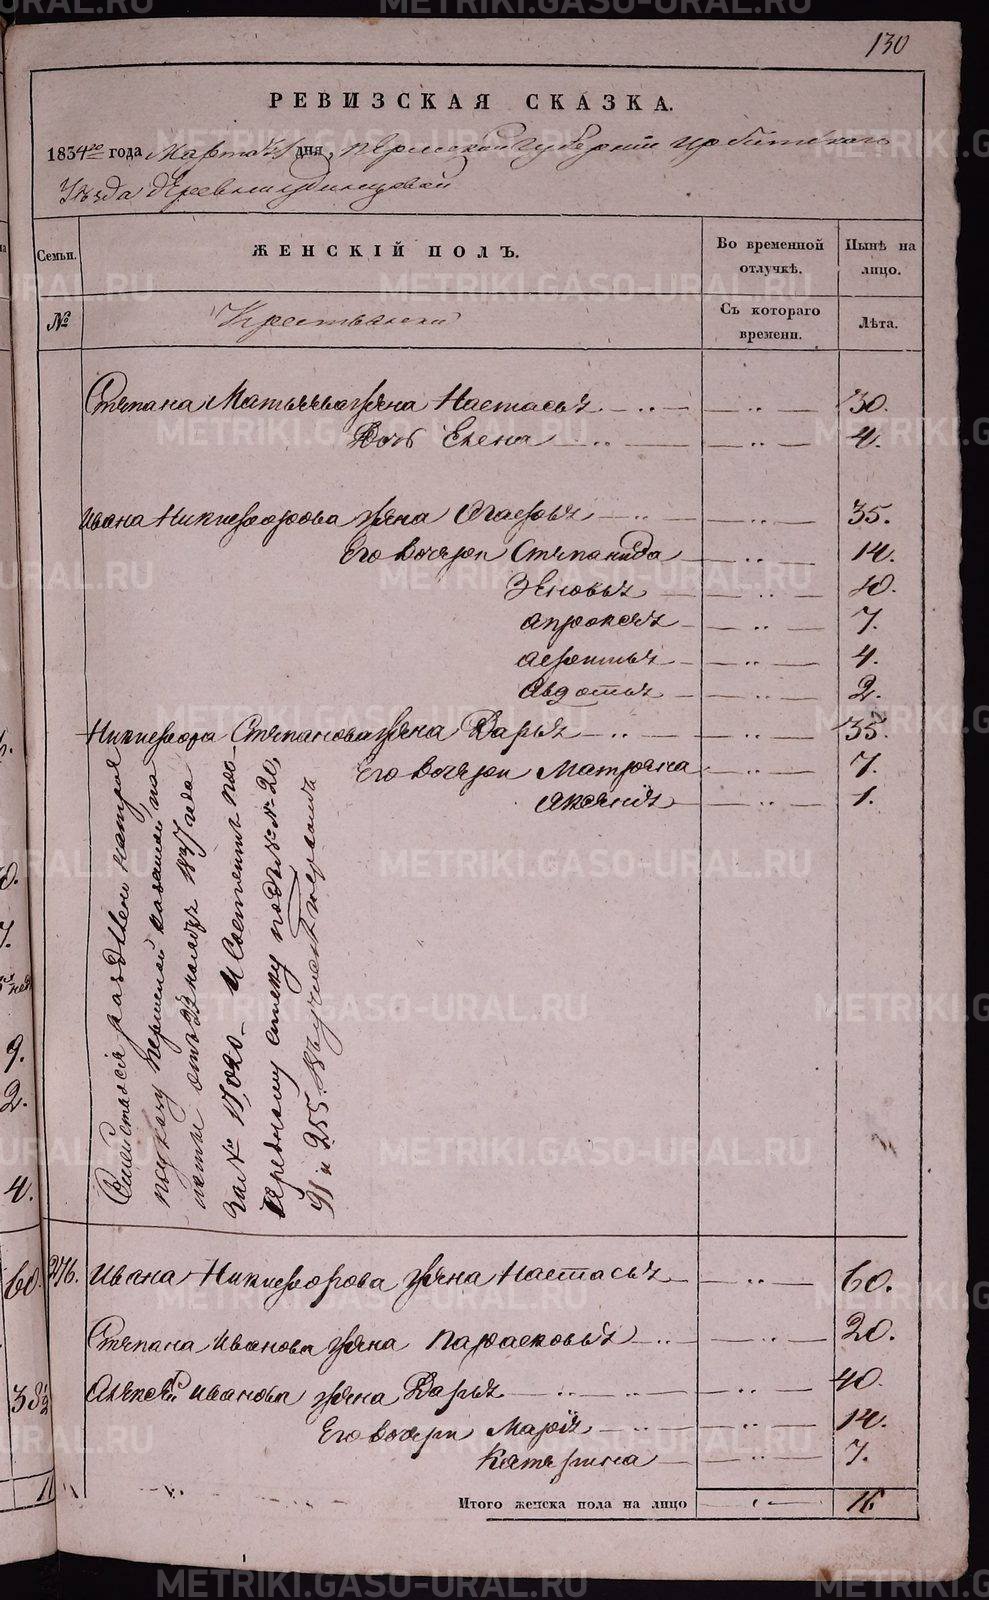 130
РЕВИЗСКАЯ СКАЗКА.
1834го года Марта дня, Пермской губернии Ирбитского
Уезда деревни
Семьи.
ЖЕНСКІЙ ПОЛЪ.
Во временной отлучкѣ.
Нынѣ на лицо.
№
Крестьянски
Съ котораго времени.
Лѣта.
Степана Матвеева жена Настасья — 30.
Дочь Елена — 4.
Ивана Никифорова жена Агафья — 35.
Его дочери Степанида — 14.
Зеновья — 10.
Апросья — 7.
Афимья — 4.
Авдотья — 2.
Никифора Степанова жена Дарья — 35.
Его дочери Матрена — 7.
Аксенья — 1.
Семейства раздѣлены
по указу пермской казенной па
латы отъ 22 ноября 1837 года
за № 17,020. И состоитъ по
сему списку подъ №№ 20,
91 и 255.
276. Ивана Никифорова жена Настасья — 60.
Степана Иванова жена Парасковья — 20.
Алексей Иванова жена Дарья — 40.
Его дочери Марья — 14.
Катерина — 7.
Итого женска пола на лицо — 16
9.
2.
4.
60.
METRIKI.GASO-URAL.RU